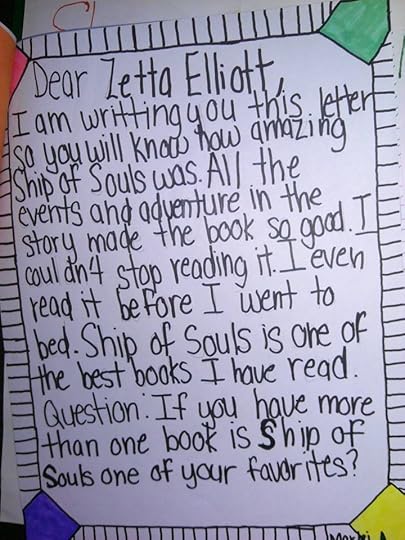 Dear Zetta Elliott,
I am writting you this letter
so you will know how amazing
Ship of Souls was. All the
events and adventure in the
story made the book so good. I
couldn't stop reading it. I even
read it before I went to
bed. Ship of Souls is one of
the best books I have read.
Question: If you have more
than one book is Ship of
Souls one of your favorites?